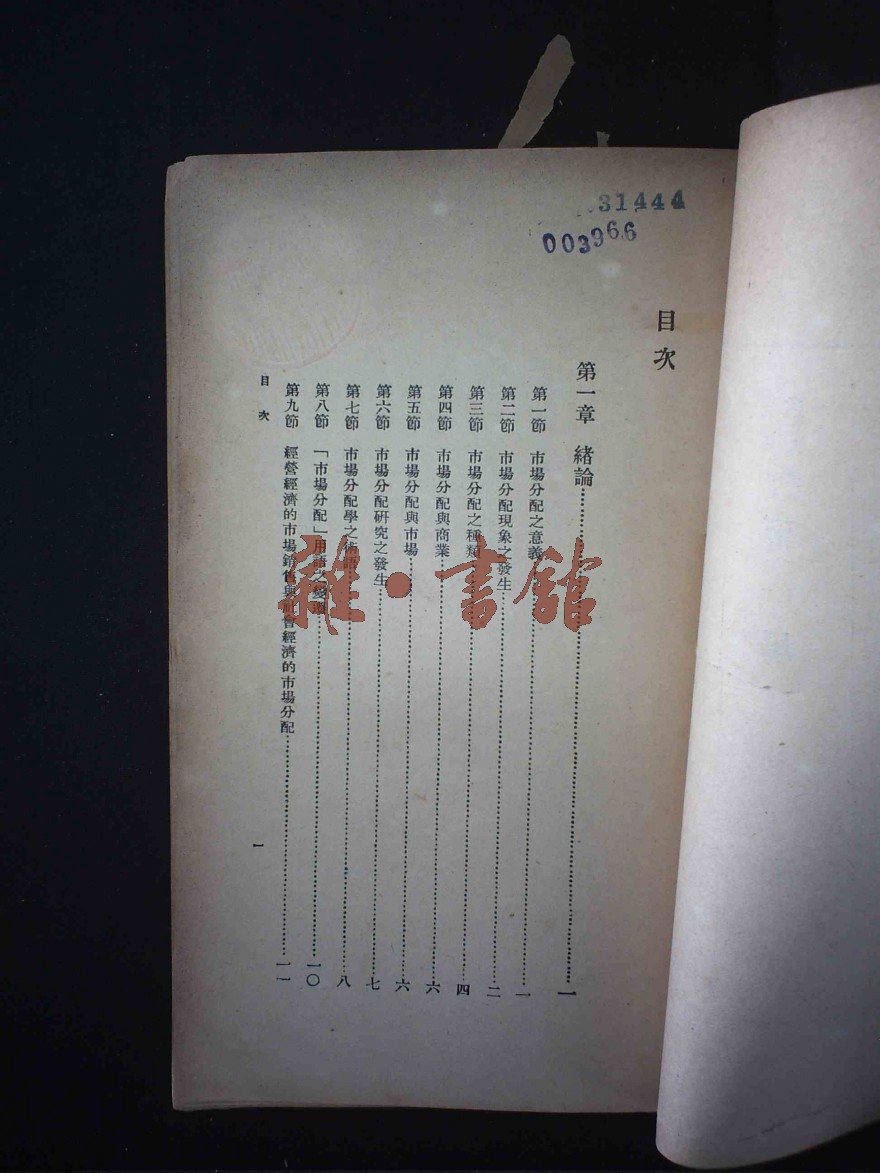 31444
003966
目次
第一章 緒論……一
第一節 市場分配之意義……一
第二節 市場分配現象之發生……二
第三節 市場分配之種類……四
第四節 市場分配與商業……六
第五節 市場分配與市場……六
第六節 市場分配研究之發生……七
第七節 市場分配學之術語……八
第八節 「市場分配」用語之變遷……一〇
第九節 經營經濟的市場銷售與社會經濟的市場分配……一一
目次
一
雜·書館